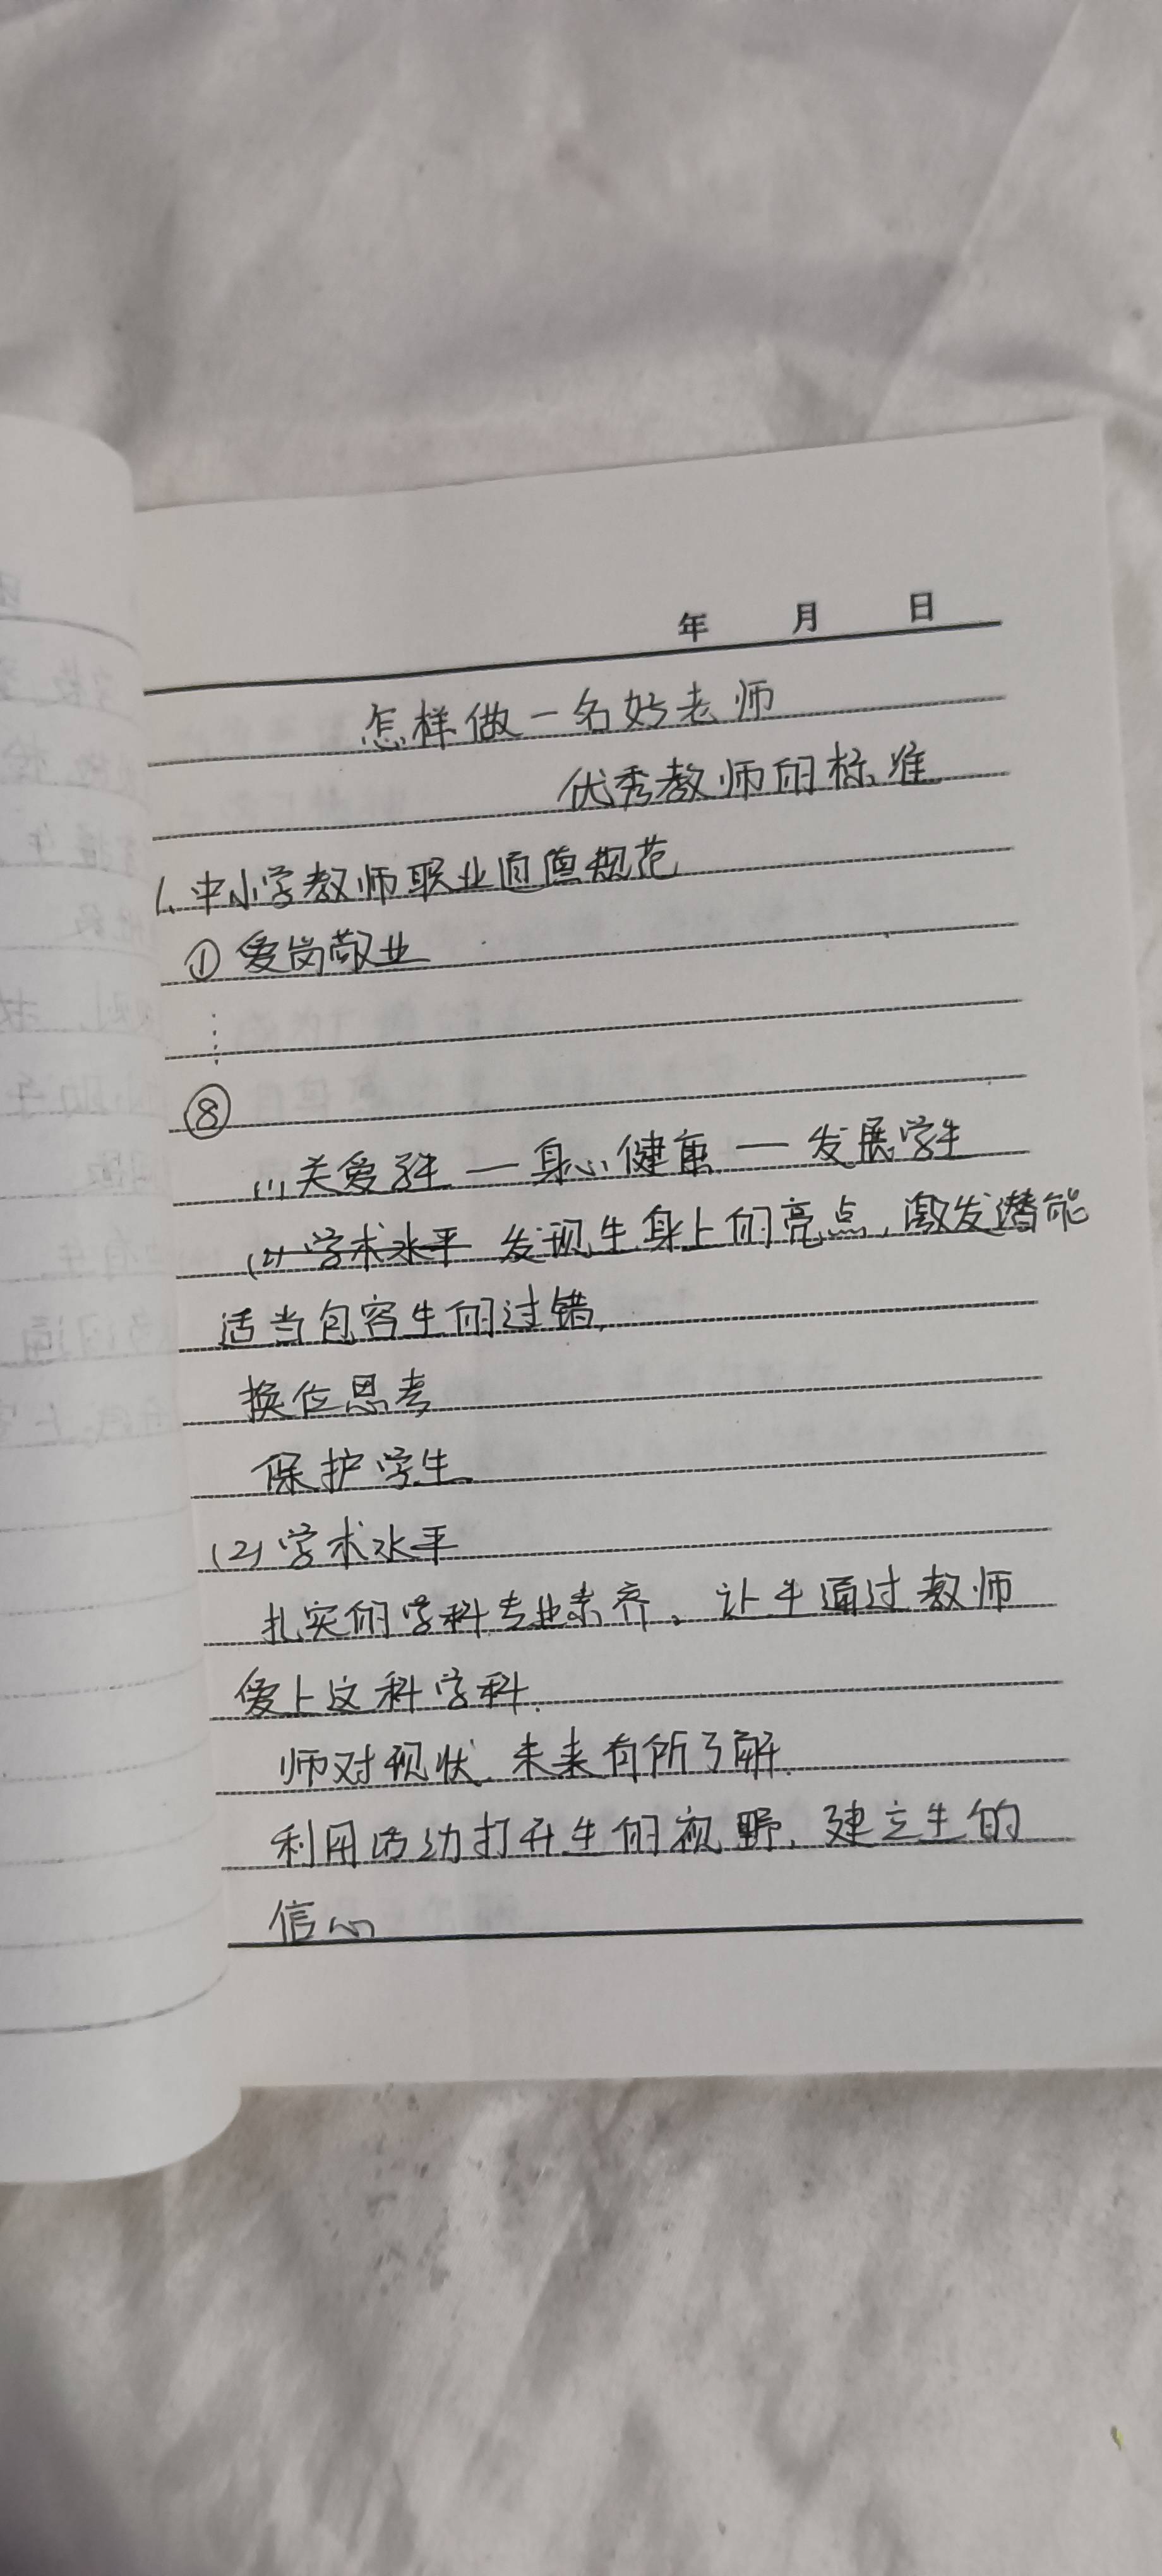 年 月 日
怎样做一名好老师
优秀教师的标准
1、中小学教师职业道德规范
① 爱岗敬业
⋮
⑧
(1)关爱学生 — 身心健康 — 发展学生
(2)学术水平 发现生身上的亮点,激发潜能
适当包容生的过错,
换位思考
保护学生.
(2)学术水平
扎实的学科专业素养、让生通过教师
爱上这科学科.
师对现状、未来有所了解.
利用活动打开生的视野、建立生的
信心